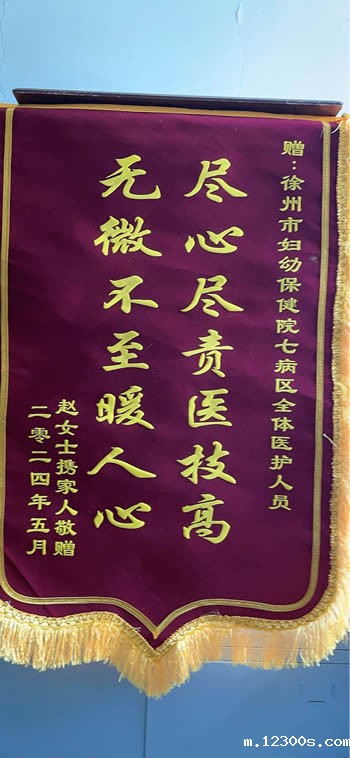 赠：徐州市妇幼保健院七病区全体医护人员
尽心尽责医技高
无微不至暖人心
赵女士携家人敬赠
二零二四年五月
m.12300s.com